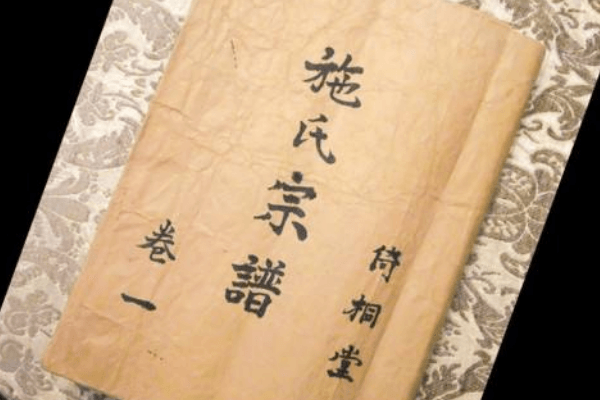 侍桐堂
施氏宗譜
卷一